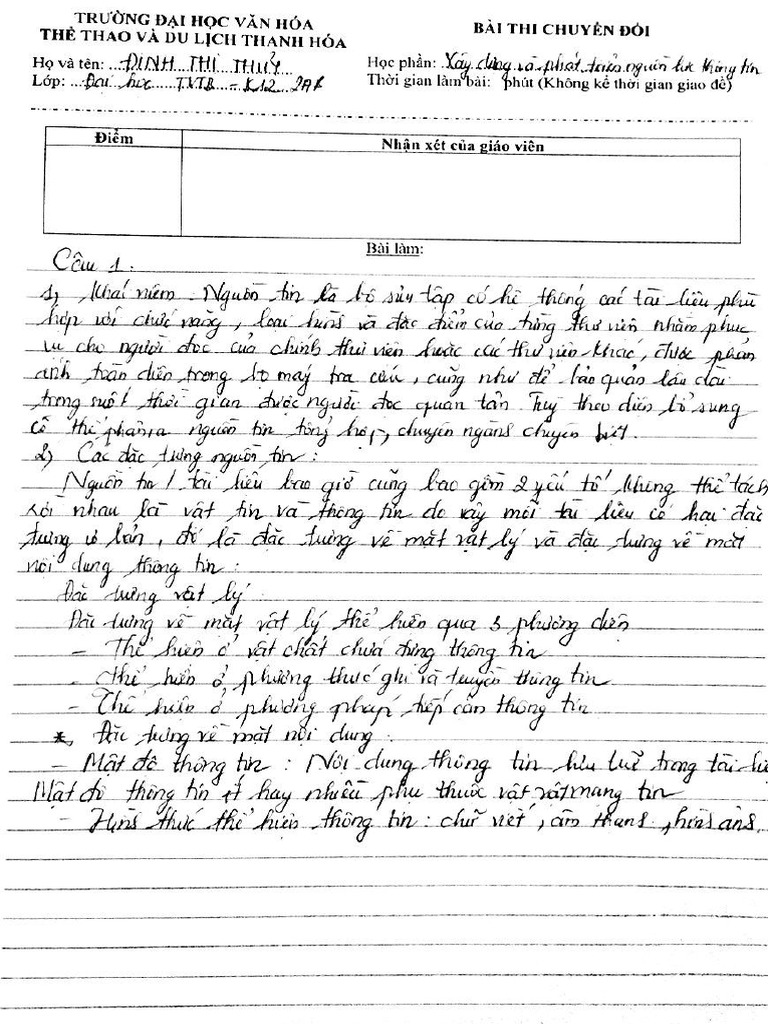 TRƯỜNG ĐẠI HỌC VĂN HÓA
THỂ THAO VÀ DU LỊCH THANH HÓA
BÀI THI CHUYỂN ĐỔI
Họ và tên: ĐINH THỊ THUỶ
Học phần: Xây dựng và phát triển nguồn lực thông tin
Lớp: Đại học TVTB - K12
Thời gian làm bài: phút (Không kể thời gian giao đề)
Điểm
Nhận xét của giáo viên
Bài làm:
Câu 1:
1, Khái niệm: Nguồn tin là bộ sưu tập có hệ thống các tài liệu phù
hợp với chức năng, loại hình và đặc điểm của từng thư viện nhằm phục
vụ cho người đọc của chính thư viện hoặc các thư viện khác, được phản
ánh toàn diện trong bộ máy tra cứu, cũng như để bảo quản lâu dài
trong suốt thời gian được người đọc quan tân. Tuỳ theo diện bổ sung
có thể phân ra nguồn tin tổng hợp, chuyên ngành chuyên biệt.
2, Các đặc tưng nguồn tin:
Nguồn tin / tài liệu bao giờ cũng bao gồm 2 yếu tố không thể tách
rời nhau là vật tin và thông tin do vậy mỗi tài liệu có hai đặc
tưng cơ bản, đó là đặc tưng về mặt vật lý và đặc tưng về mặt
nội dung thông tin:
Đặc tưng vật lý
Đặc tưng về mặt vật lý thể hiện qua 3 phương diện
- Thể hiện ở vật chất chứa đựng thông tin
- Thể hiện ở phương thức ghi và truyền thông tin
- Thể hiện ở phương pháp tiếp cận thông tin
*, Đặc tưng về mặt nội dung:
- Mật độ thông tin: Nội dung thông tin lưu trữ trong tài
Mật độ thông tin ít hay nhiều phụ thuộc vật vật mang tin
- Hình thức thể hiện thông tin: chữ viết, âm thanh, hình ảnh.